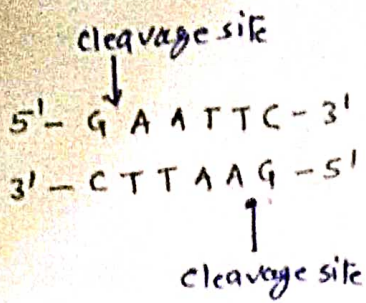 cleavage site
5'- G A A T T C - 3'
3' - C T T A A G - 5'
cleavage site